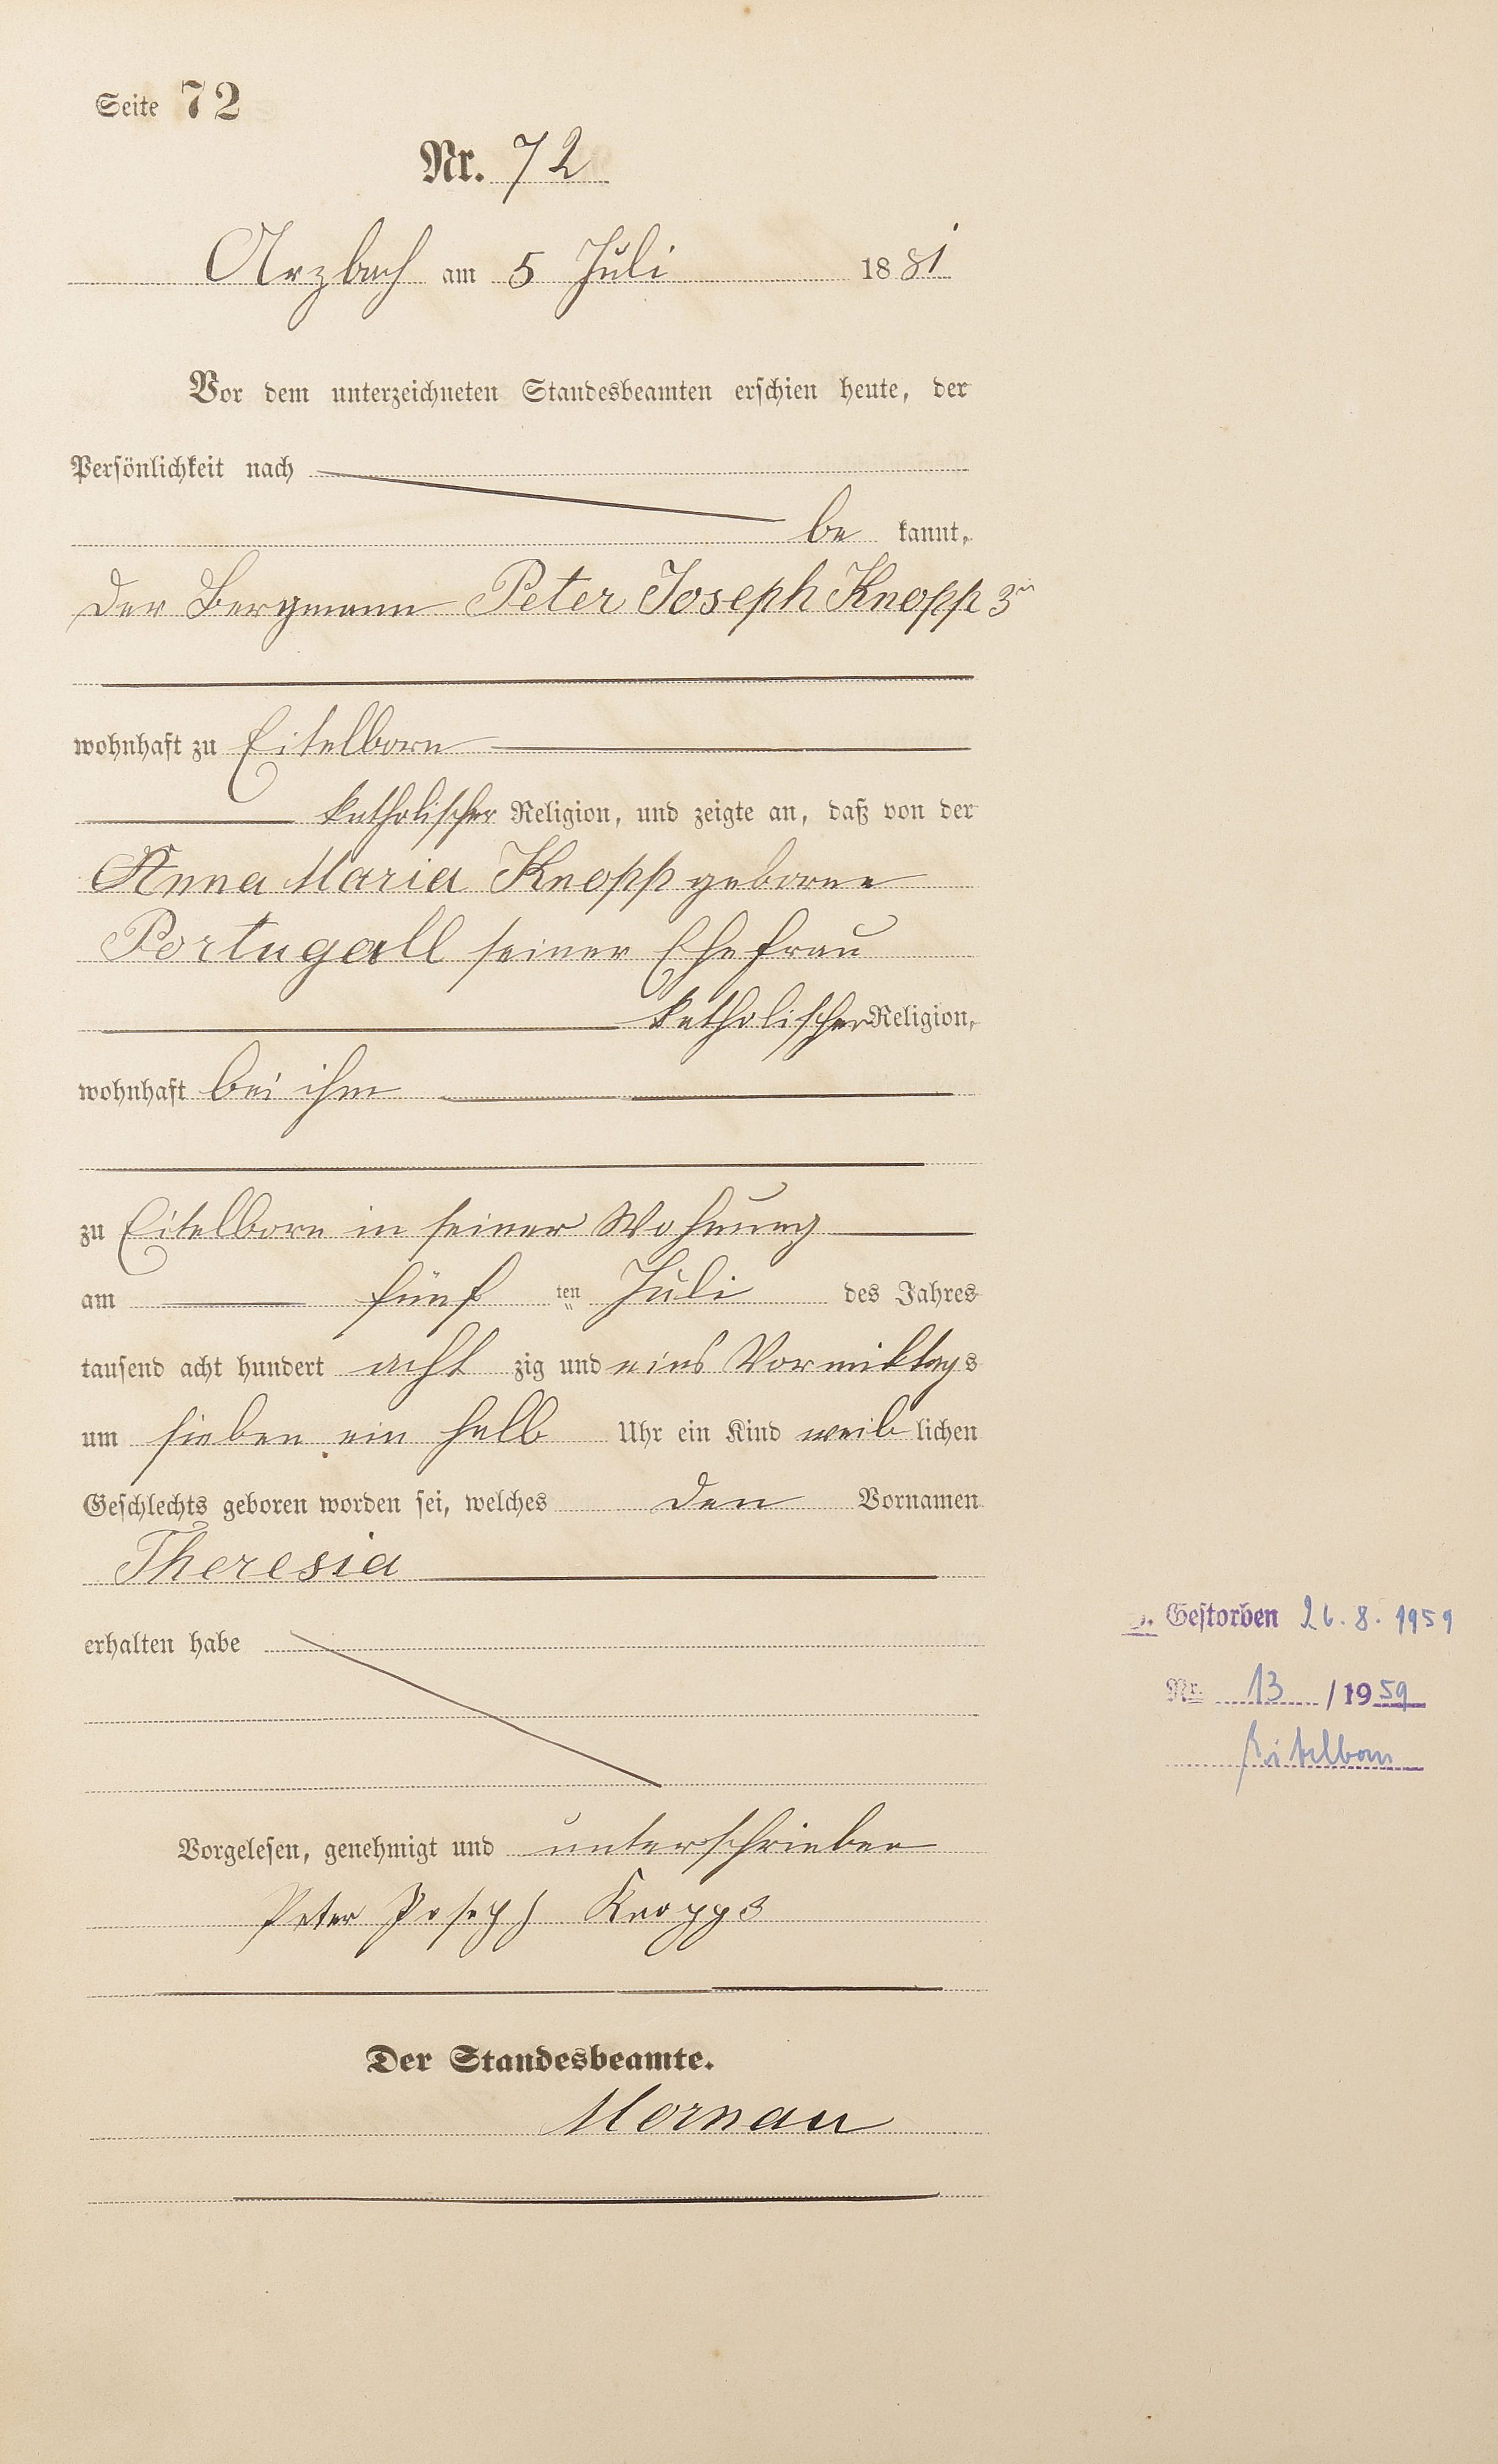 Seite 72
Nr. 72
Arzbach am 5 Juli 1881
Vor dem unterzeichneten Standesbeamten erschien heute, der
Persönlichkeit nach
be kannt,
der Bergmann Peter Joseph Knopp 3r
wohnhaft zu Eitelborn
katholischer Religion, und zeigte an, daß von der
Anna Maria Knopp geborne
Portugall seiner Ehefrau
katholischer Religion,
wohnhaft bei ihm
zu Eitelborn in seiner Wohnung
am fünf ten Juli des Jahres
tausend acht hundert acht zig und eins Vormittags
um sieben ein halb Uhr ein Kind weib lichen
Geschlechts geboren worden sei, welches den Vornamen
Theresia
erhalten habe
Gestorben 26. 8. 1959
Nr. 13 / 1959
Eitelborn
Vorgelesen, genehmigt und unterschrieben
Peter Joseph Knopp 3
Der Standesbeamte.
Mornau